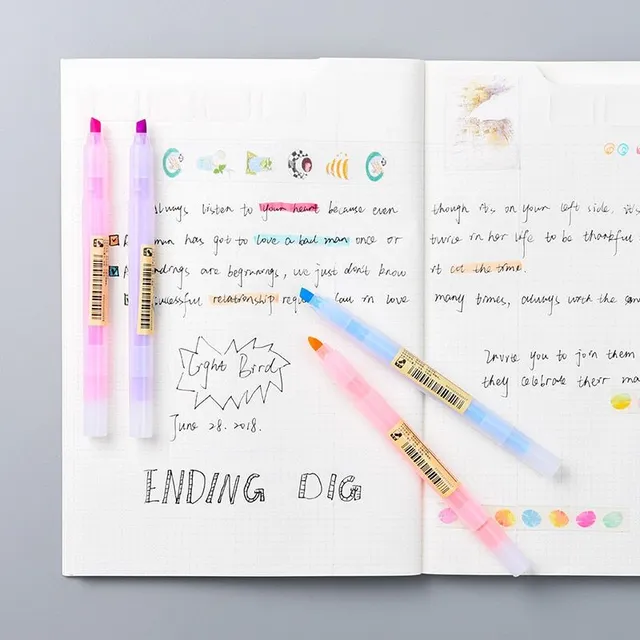 Always listen to your heart because even
man has got to love a bad man once or
endings are beginnings, we just don't know
successful relationship law in love
Light Bird
June 28. 2018.
ENDING DIG
though it's on your left side, it's
twice in her life to be thankful
it at the time.
many times, always with the same
Invite you to join them
they celebrate their